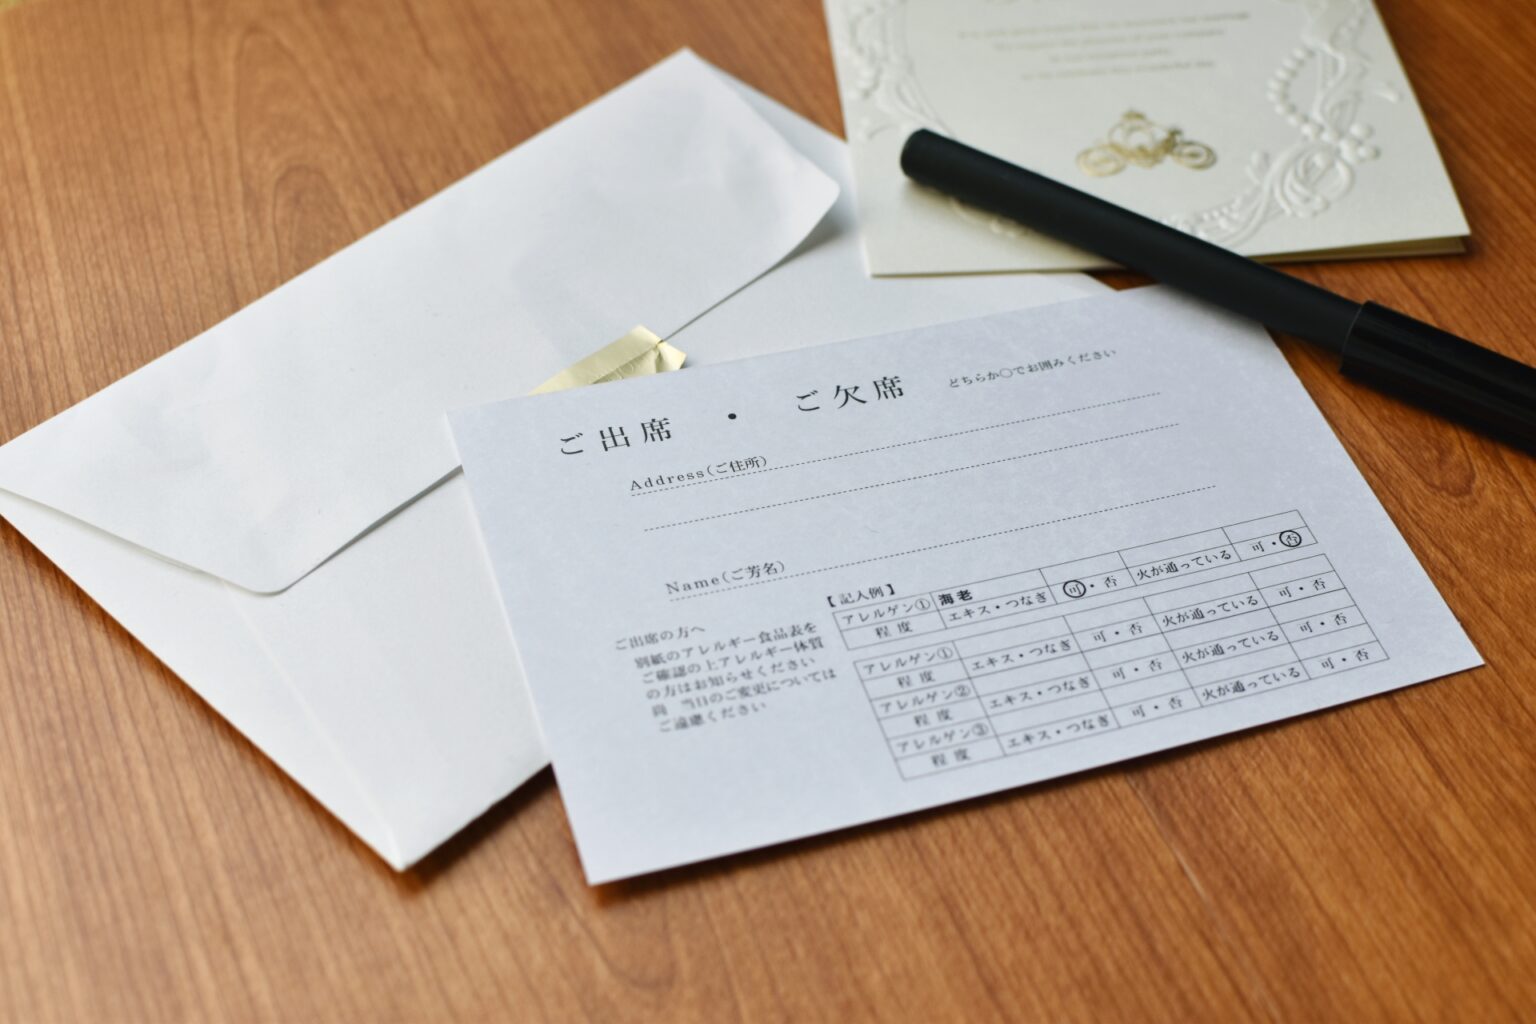 ご出席 ・ ご欠席 どちらか〇でお囲みください
Address(ご住所)
Name(ご芳名)
ご出席の方へ
別紙のアレルギー食品表を
ご確認の上アレルギー体質
の方はお知らせください
尚 当日のご変更については
ご遠慮ください
【記入例】
アレルゲン① 海老
程度 エキス・つなぎ 可・否 火が通っている 可・否
アレルゲン①
程度 エキス・つなぎ 可・否 火が通っている 可・否
アレルゲン②
程度 エキス・つなぎ 可・否 火が通っている 可・否
アレルゲン③
程度 エキス・つなぎ 可・否 火が通っている 可・否